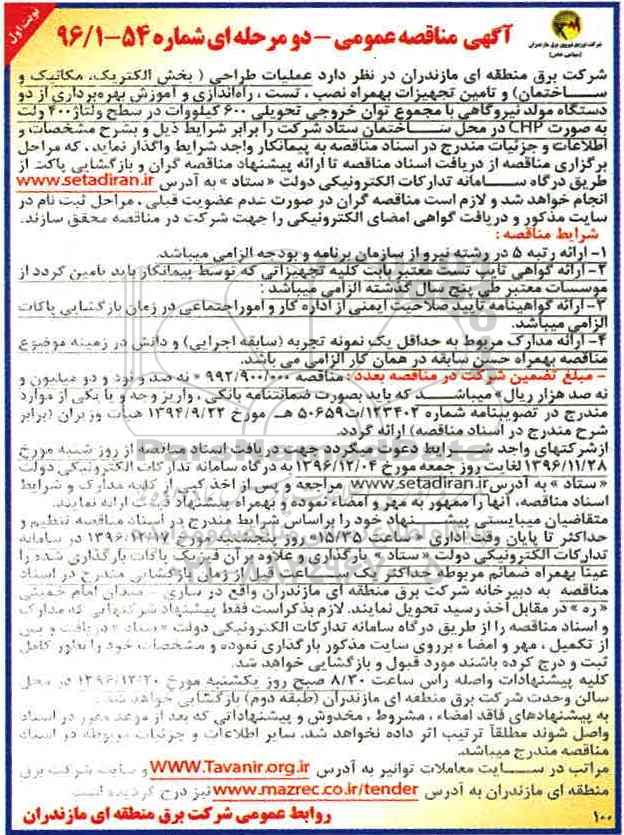 نوبت اول
شرکت توزیع نیروی برق مازندران
(سهامی خاص)
آگهی مناقصه عمومی – دو مرحله ای شماره ۵۴-۹۶/۱
شرکت برق منطقه ای مازندران در نظر دارد عملیات طراحی ( بخش الکتریک، مکانیک و
ساختمان) و تامین تجهیزات بهمراه نصب ، تست ، راه‌اندازی و آموزش بهره‌برداری از دو
دستگاه مولد نیروگاهی با مجموع توان خروجی تحویلی ۶۰۰ کیلووات در سطح ولتاژ ۴۰۰ ولت
به صورت CHP در محل ساختمان ستاد شرکت را برابر شرایط ذیل و بشرح مشخصات و
اطلاعات و جزئیات مندرج در اسناد مناقصه به پیمانکار واجد شرایط واگذار نماید ، که مراحل
برگزاری مناقصه از دریافت اسناد مناقصه تا ارائه پیشنهاد مناقصه گران و بازگشایی پاکت از
طریق درگاه سامانه تدارکات الکترونیکی دولت « ستاد » به آدرس www.setadiran.ir
انجام خواهد شد و لازم است مناقصه گران در صورت عدم عضویت قبلی ، مراحل ثبت نام در
سایت مذکور و دریافت گواهی امضای الکترونیکی را جهت شرکت در مناقصه محقق سازند.
شرایط مناقصه :
۱- ارائه رتبه ۵ در رشته نیرو از سازمان برنامه و بودجه الزامی میباشد.
۲- ارائه گواهی تایپ تست معتبر بابت کلیه تجهیزاتی که توسط پیمانکار باید تامین گردد از
موسسات معتبر طی پنج سال گذشته الزامی میباشد :
۳- ارائه گواهینامه تایید صلاحیت ایمنی از اداره کار و امور اجتماعی در زمان بازگشایی پاکات
الزامی میباشد.
۴- ارائه مدارک مربوط به حداقل یک نمونه تجربه (سابقه اجرایی) و دانش در زمینه موضوع
مناقصه بهمراه حسن سابقه در همان کار الزامی می باشد.
– مبلغ تضمین شرکت در مناقصه بعدد : مناقصه ۹۹۲/۹۰۰/۰۰۰ « نه صد و نود و دو میلیون و
نه صد هزار ریال» میباشد که باید بصورت ضمانتنامه بانکی ، واریز وجه و یا یکی از موارد
مندرج در تصویبنامه شماره ۱۲۳۴۰۲/ت۵۰۶۵۹ هـ مورخ ۱۳۹۴/۹/۲۲ هیأت وزیران (برابر
شرح مندرج در اسناد مناقصه) ارائه گردد.
ازشرکتهای واجد شرایط دعوت میگردد جهت دریافت اسناد مناقصه از روز شنبه مورخ
۱۳۹۶/۱۱/۲۸ لغایت روز جمعه مورخ ۱۳۹۶/۱۲/۰۴ به درگاه سامانه تدارکات الکترونیکی دولت
« ستاد » به آدرس www.setadiran.ir مراجعه و پس از اخذ کپی از کلیه مدارک و شرایط
اسناد مناقصه، آنها را ممهور به مهر و امضاء نموده و بهمراه پیشنهاد قیمت ارائه نمایند.
متقاضیان میبایستی پیشنهاد خود را براساس شرایط مندرج در اسناد مناقصه تنظیم و
حداکثر تا پایان وقت اداری ساعت ۱۵/۳۵ روز پنجشنبه مورخ ۱۳۹۶/۱۲/۱۷ در سامانه
تدارکات الکترونیکی دولت « ستاد » بارگذاری و علاوه بر آن فیزیک پاکات بارگذاری شده را
عیناً بهمراه ضمائم مربوطه حداکثر یک ساعت قبل از زمان بازگشایی مندرج در اسناد
مناقصه به دبیرخانه شرکت برق منطقه ای مازندران واقع در ساری – میدان امام خمینی
«ره» در مقابل اخذ رسید تحویل نمایند. لازم بذکر است فقط پیشنهاد شرکتهایی که مدارک
و اسناد مناقصه را از طریق درگاه سامانه تدارکات الکترونیکی دولت «ستاد » دریافت و پس
از تکمیل ، مهر و امضاء برروی سایت مذکور بارگذاری نموده و مشخصات خود را بطور کامل
ثبت و درج کرده باشند مورد قبول و بازگشایی خواهد شد.
کلیه پیشنهادات واصله راس ساعت ۸/۳۰ صبح روز یکشنبه مورخ ۱۳۹۶/۱۲/۲۰ در محل
سالن وحدت شرکت برق منطقه ای مازندران (طبقه دوم) بازگشایی خواهد شد.
به پیشنهادهای فاقد امضاء ، مشروط ، مخدوش و پیشنهاداتی که بعد از موعد مقرر در اسناد
واصل شوند مطلقاً ترتیب اثر داده نخواهد شد. سایر اطلاعات و جزئیات مربوطه در اسناد
مناقصه مندرج میباشد.
مراتب در سایت معاملات توانیر به آدرس WWW.Tavanir.org.ir و سایت شرکت برق
منطقه ای مازندران به آدرس www.mazrec.co.ir/tender نیز درج گردیده است
روابط عمومی شرکت برق منطقه ای مازندران
۱۰۰